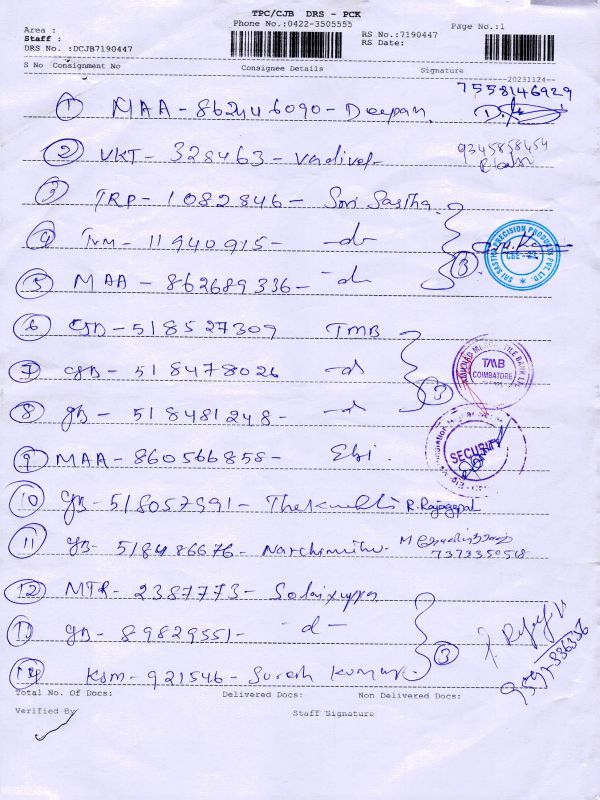 TPC/CJB DRS - PCK
Phone No.:0422-3505555
Area :
Staff :
DRS No. :DCJB7190447
RS No.:7190447
RS Date:
Page No.:1
S No Consignment No Consignee Details Signature
20231124
7558146929
1 MAA - 862446090 - Deepan.
2 VKT - 328463 - Vadivel
9345858454
3 TRP - 1082846 - Sri Sastha.
4 TVM - 11940915 - do
5 MAA - 862689336 - do
3
SRI SASTHA PRECISION PRODUCTS PVT. LTD.
CBE - 23
6 CJB - 518527309 TMB
7 CJB - 518478026 - do
8 CJB - 518481248 - do
3
TMB
COIMBATORE
9 MAA - 860566858 - Ebi.
SECURITY
10 CJB - 518057591 - R. Rajagopal
11 CJB - 518486676 - Narchimuthu. M
7373350518
12 MTR - 2387773 -
13 CJB - 89829551 - do -
14 KSM - 921546 - Suresh Kumar
3
Total No. Of Docs: Delivered Docs: Non Delivered Docs:
Verified By
Staff Signature